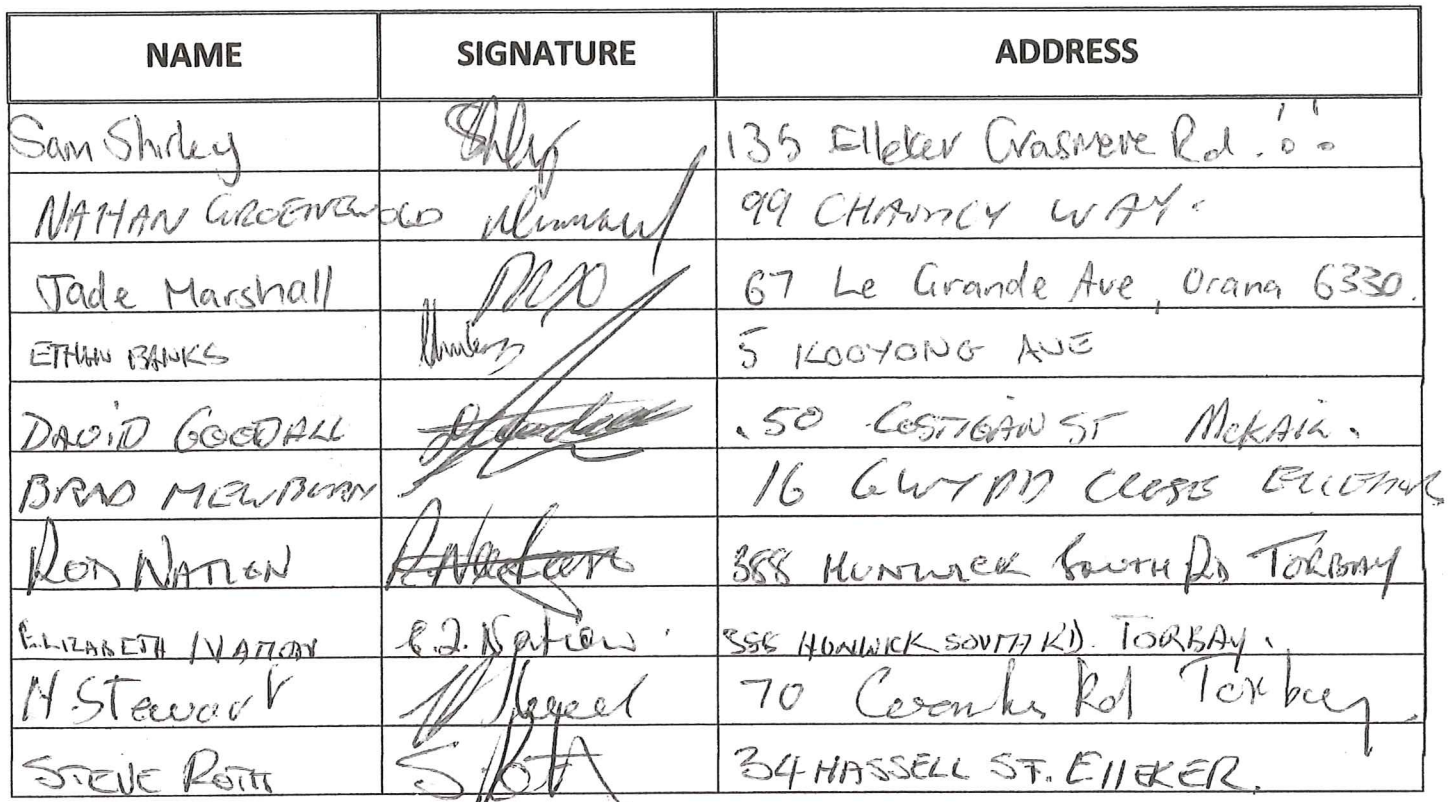 NAME SIGNATURE ADDRESS
Sam Shirley 135 Elleker Grasmere Rd.
NATHAN GROENEWOLD 99 WAY.
Jade Marshall 67 Le Grande Ave, Orana 6330.
ETHAN BANKS 5 KOOYONG AVE
DAVID GOODALL 50 COSTIGAN ST McKAIL.
BRAD MEWBURN 16 CLOSE
ROD NATION 388 HUNWICK SOUTH RD TORBAY
ELIZABETH NATION E.J. Nation. 388 HUNWICK SOUTH RD. TORBAY.
N Stewart 70 Rd Torbay
STEVE ROTH S. ROTH 34 HASSELL ST. ELLEKER.